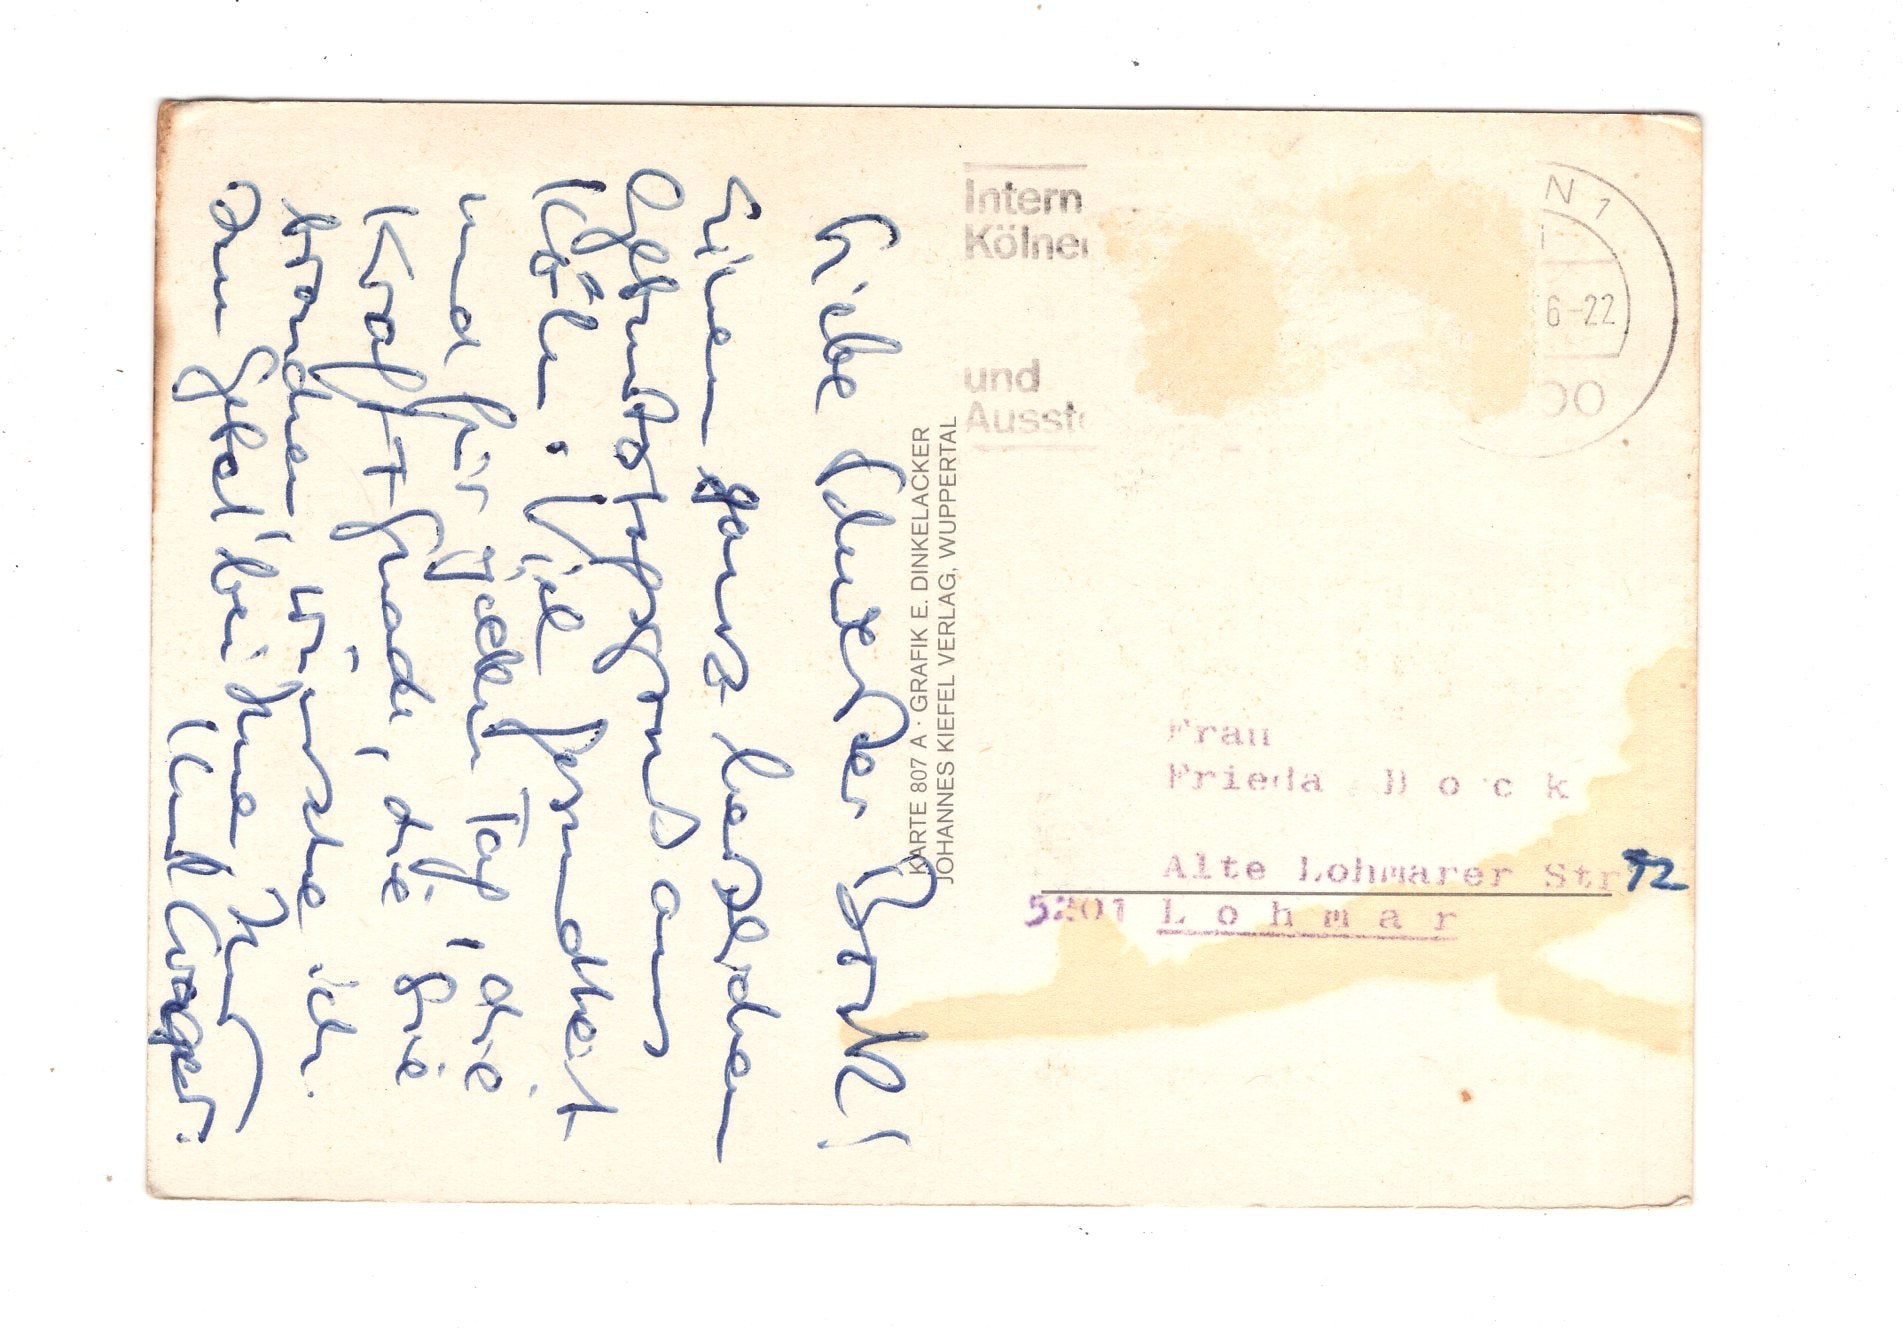 Liebe Schwester Bock!
Einen ganz herzlichen
Geburtstagsgruß aus
Köln. Viel Gesundheit
und für jeden Tag, die
Kraft + Freude, die Sie
brauchen wünsche ich.
Im Gebet bei Ihnen Ihr
Karl
KARTE 807 A · GRAFIK E. DINKELACKER
JOHANNES KIEFEL VERLAG, WUPPERTAL
Intern
Kölner
und
Ausste
N 1
6-22
00
Frau
Frieda B o c k
Alte Lohmarer Str 72
5201 L o h m a r